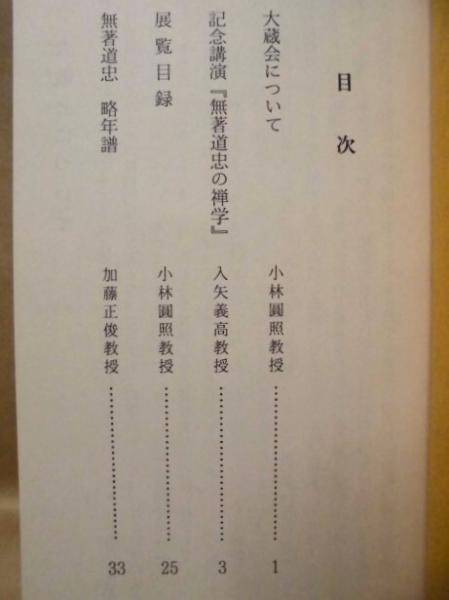 目次
大蔵会について 小林圓照教授 1
記念講演『無著道忠の禅学』 入矢義高教授 3
展覧目録 小林圓照教授 25
無著道忠 略年譜 加藤正俊教授 33